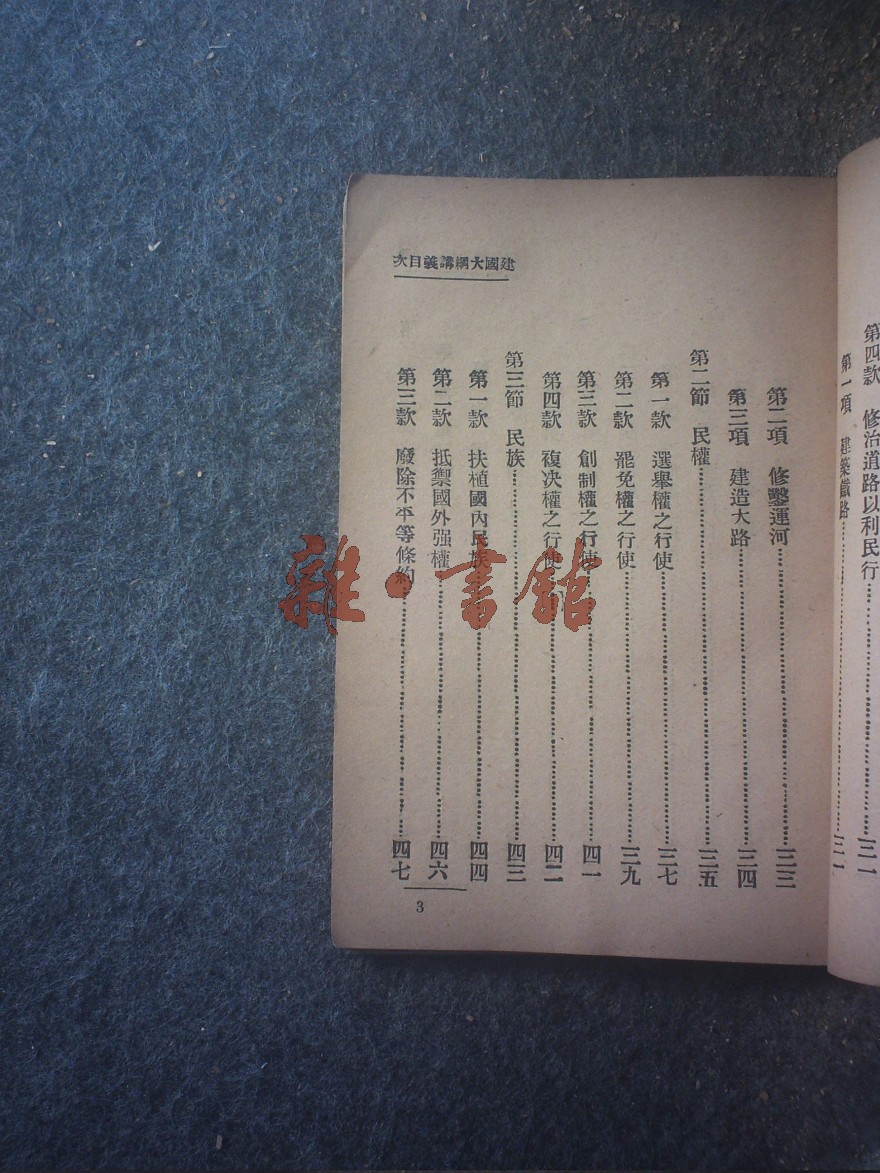 建國大綱講義目次
第四款 修治道路以利民行……三一
第一項 建築鐵路……三二
第二項 修鑿運河……三三
第三項 建造大路……三四
第二節 民權……三五
第一款 選舉權之行使……三七
第二款 罷免權之行使……三九
第三款 創制權之行使……四一
第四款 複决權之行使……四二
第三節 民族……四三
第一款 扶植國內民族……四四
第二款 抵禦國外强權……四六
第三款 廢除不平等條約……四七
3
雜·書舘